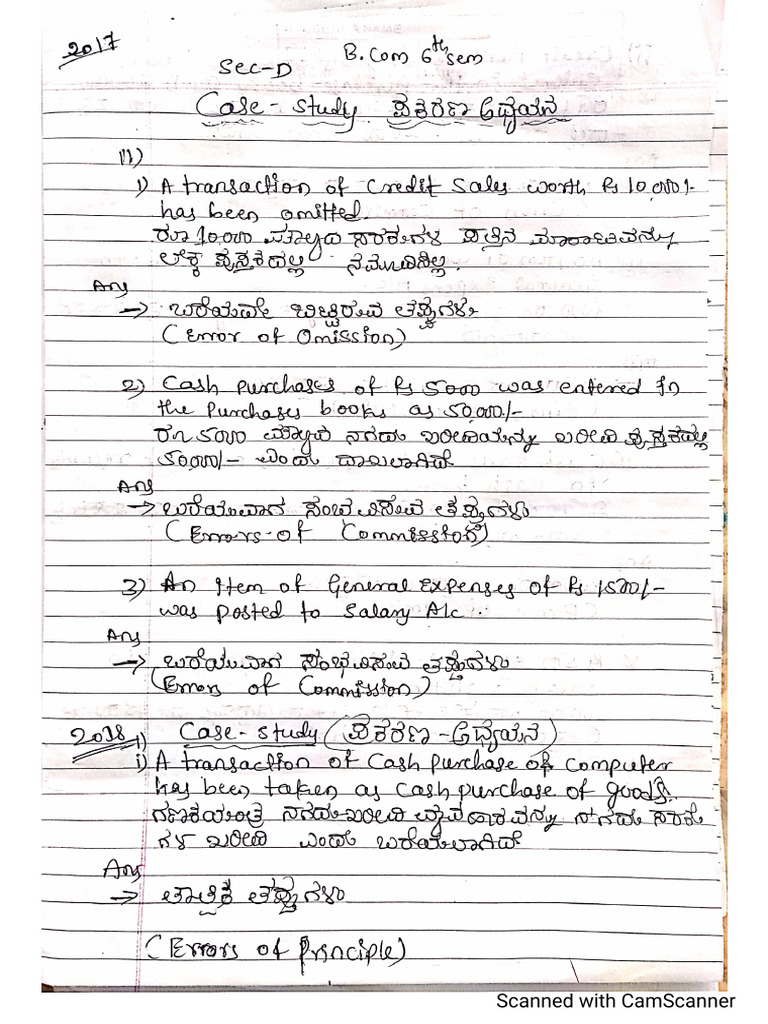 2017
B.Com 6th sem
Sec-D
Case - study ಪ್ರಕರಣ ಅಧ್ಯಯನ
11)
1) A transaction of credit Sales worth Rs 10,000/-
has been omitted.
ರೂ 10,000 ಮೌಲ್ಯದ ಸರಕುಗಳ ಪತ್ತಿನ ಮಾರಾಟವನ್ನು
ಲೆಕ್ಕ ಪುಸ್ತಕದಲ್ಲಿ ನಮೂದಿಸಿಲ್ಲ.
Ans
→ ಬರೆಯದೇ ಬಿಟ್ಟಿರುವ ತಪ್ಪುಗಳು
(Error of Omission)
2) Cash purchases of Rs 5000 was entered in
the purchases books as 50,000/-
ರೂ 5000 ಮೌಲ್ಯದ ನಗದು ಖರೀದಿಯನ್ನು ಖರೀದಿ ಪುಸ್ತಕದಲ್ಲಿ
50,000/- ಎಂದು ದಾಖಲಾಗಿದೆ
Ans
→ ಬರೆಯುವಾಗ ಸಂಭವಿಸುವ ತಪ್ಪುಗಳು
(Errors of Commission)
3) An Item of General Expenses of Rs 1500/-
was posted to Salary A/c.
Ans
→ ಬರೆಯುವಾಗ ಸಂಭವಿಸುವ ತಪ್ಪುಗಳು
(Errors of Commission)
2018 1) Case - study (ಪ್ರಕರಣ - ಅಧ್ಯಯನ)
i) A transaction of Cash purchase of computer
has been taken as Cash purchase of goods.
ಗಣಕಯಂತ್ರ ನಗದು ಖರೀದಿ ವ್ಯವಹಾರವನ್ನು ನಗದು ಸರಕು
ಗಳ ಖರೀದಿ ಎಂದು ಬರೆಯಲಾಗಿದೆ
Ans
→ ತಾತ್ವಿಕ ತಪ್ಪುಗಳು
(Errors of Principle)
Scanned with CamScanner